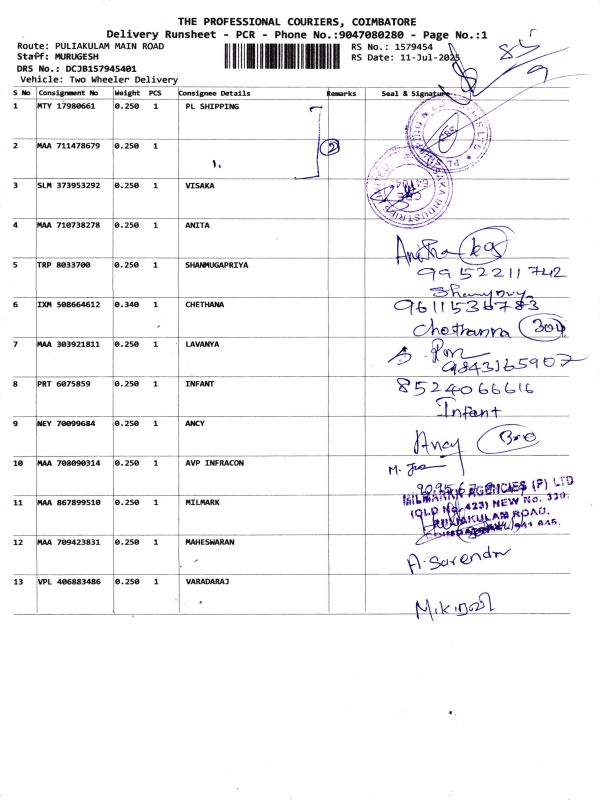 THE PROFESSIONAL COURIERS, COIMBATORE
Delivery Runsheet - PCR - Phone No.:9047080280 - Page No.:1
Route: PULIAKULAM MAIN ROAD
RS No.: 1579454
Staff: MURUGESH
RS Date: 11-Jul-2025
DRS No.: DCJB157945401
Vehicle: Two Wheeler Delivery
85
9
S No Consignment No Weight PCS Consignee Details Remarks Seal & Signature
1 MTY 17980661 0.250 1 PL SHIPPING
2 MAA 711478679 0.250 1 2
1.
3 SLM 373953292 0.250 1 VISAKA
4 MAA 710738278 0.250 1 ANITA
Anitha
5 TRP 8033700 0.250 1 SHANMUGAPRIYA
9952211742
6 IXM 508664612 0.340 1 CHETHANA
9611536783
Chethanna 304
7 MAA 303921811 0.250 1 LAVANYA
9843165907
8 PRT 6075859 0.250 1 INFANT
8524066616
Infant
9 NEY 70099684 0.250 1 ANCY
Ancy Bro
10 MAA 708090314 0.250 1 AVP INFRACON
11 MAA 867899510 0.250 1 MILMARK
MILMARK AGENCIES (P) LTD
(OLD No. 423) NEW No. 330,
PULIAKULAM ROAD,
12 MAA 709423831 0.250 1 MAHESWARAN
A. Sarendr
13 VPL 406883486 0.250 1 VARADARAJ